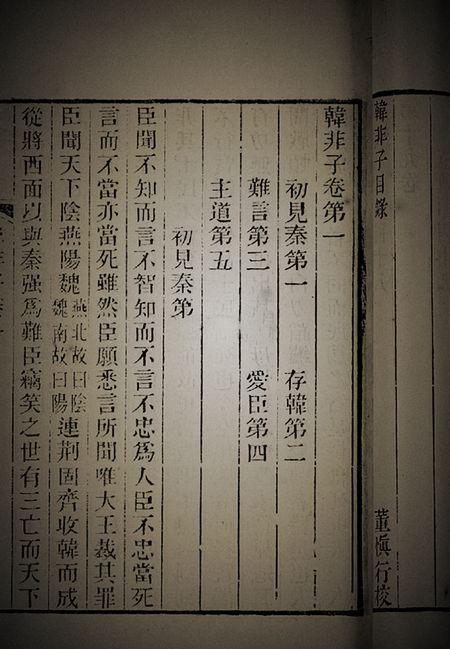 韓非子目錄 董慎行校
韓非子卷第一
初見秦第一 存韓第二
難言第三 愛臣第四
主道第五
初見秦第
臣聞不知而言不智知而不言不忠爲人臣不忠當死
言而不當亦當死雖然臣願悉言所聞唯大王裁其罪
臣聞天下陰燕陽魏燕北故曰陰魏南故曰陽連荆固齊收韓而成
從將西面以與秦强爲難臣竊笑之世有三亡而天下